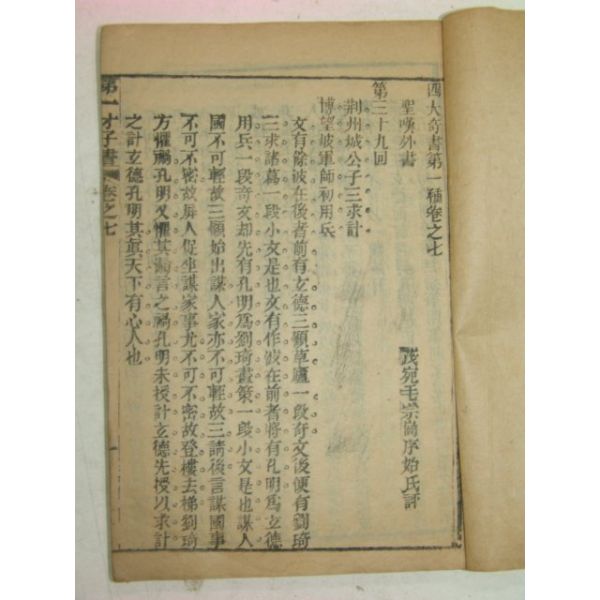 四大奇書第一種卷之七
聖嘆外書
茂宛毛宗崗序始氏評
第三十九回
荆州城公子三求計
博望坡軍師初用兵
文有餘波在後者前有立德三顧草廬一段奇文後便有劉琦
三求諸葛一段小文是也文有作波在前者將有孔明爲立德
用兵一段奇文却先有孔明爲劉琦畫策一段小文是也謀人
國不可輕故三顧始出謀人家亦不可輕故三請後言謀國事
不可不密故屏人促坐謀家事尤不可不密故登樓去梯劉琦
方懼禍孔明又懼其漏言之禍孔明未授計立德先授以求計
之計立德孔明其眞天下有心人也
第一才子書 卷之七 一